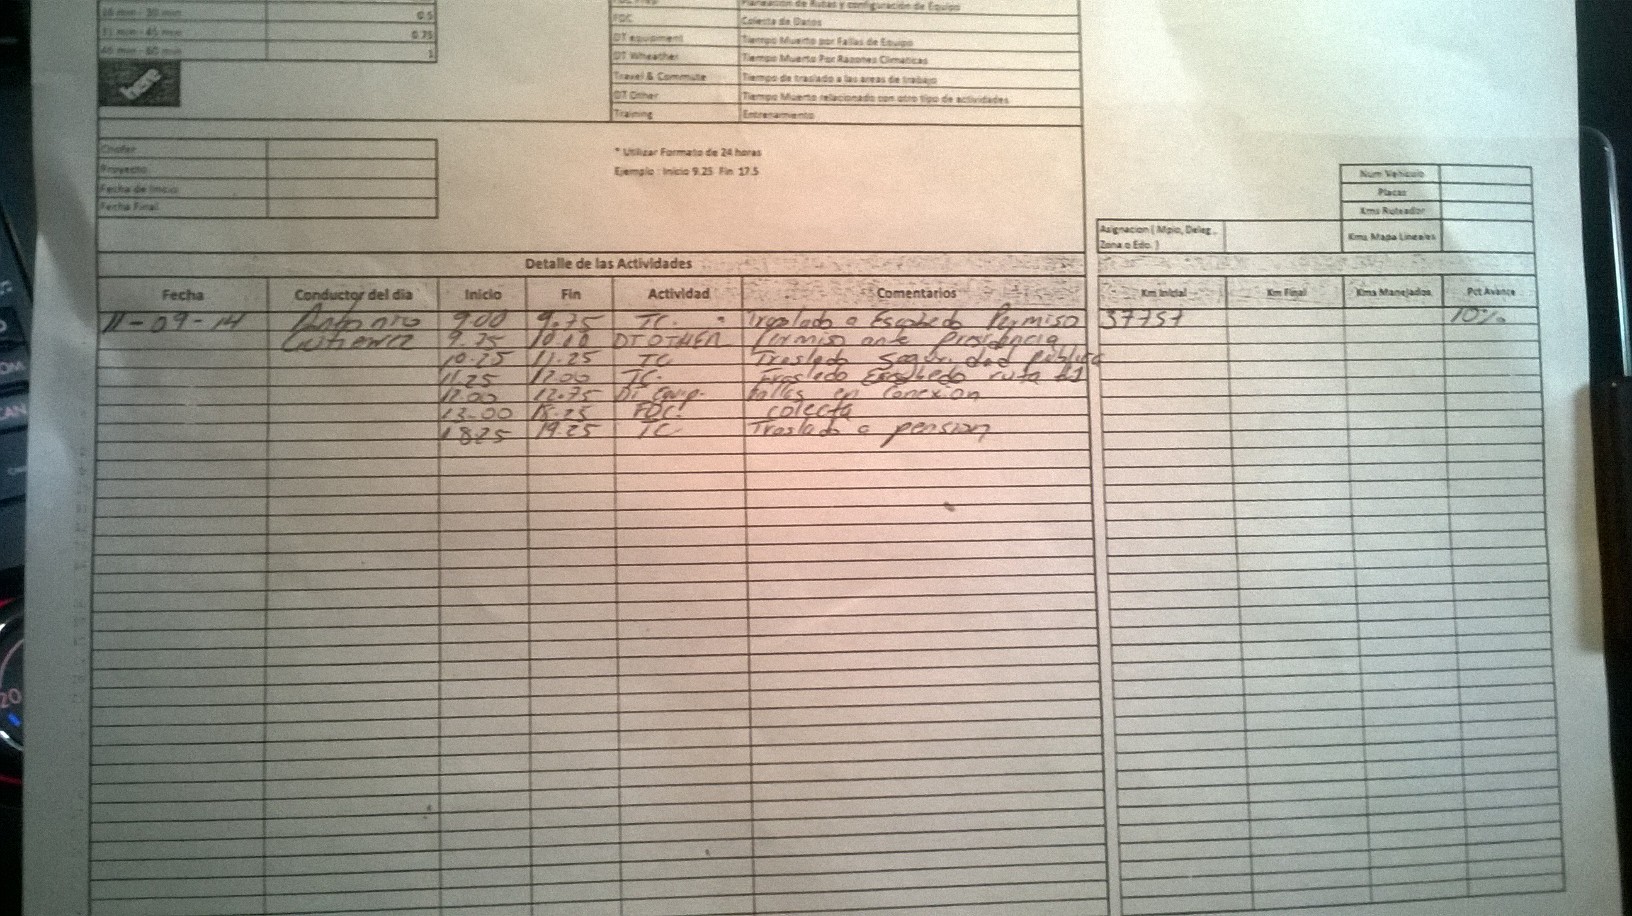 16 min - 30 min 0.5
31 min - 45 min 0.75
46 min - 60 min 1
here
Planeacion de Rutas y configuración de Equipo
FDC Colecta de Datos
DT equipment Tiempo Muerto por Fallas de Equipo
DT Wheather Tiempo Muerto Por Razones Climaticas
Travel & Commute Tiempo de traslado a las areas de trabajo
DT Other Tiempo Muerto relacionado con otro tipo de actividades
Training Entrenamiento
Chofer
Proyecto
Fecha de Inicio
Fecha Final
* Utilizar Formato de 24 horas
Ejemplo : Inicio 9.25 Fin 17.5
Num Vehiculo
Placas
Kms Ruteador
Asignacion ( Mpio, Deleg.,
Zona o Edo. )
Kms Mapa Lineales
Detalle de las Actividades
Fecha Conductor del dia Inicio Fin Actividad Comentarios Km Inicial Km Final Kms Manejados Pct Avance
11-09-14 Antonio 9.00 9.75 TC. Traslado a Escobedo Permiso 37757 10%
Gutierrez 9.75 DT OTHER Permiso ante Presidencia
10.25 11.25 TC Traslado Seguridad publica
11.25 12.00 TC. Traslado Escobedo ruta #1
12.00 12.75 DT equip. Fallas en Conexion
13.00 FDC. colecta
18.25 19.25 TC Traslado a pension